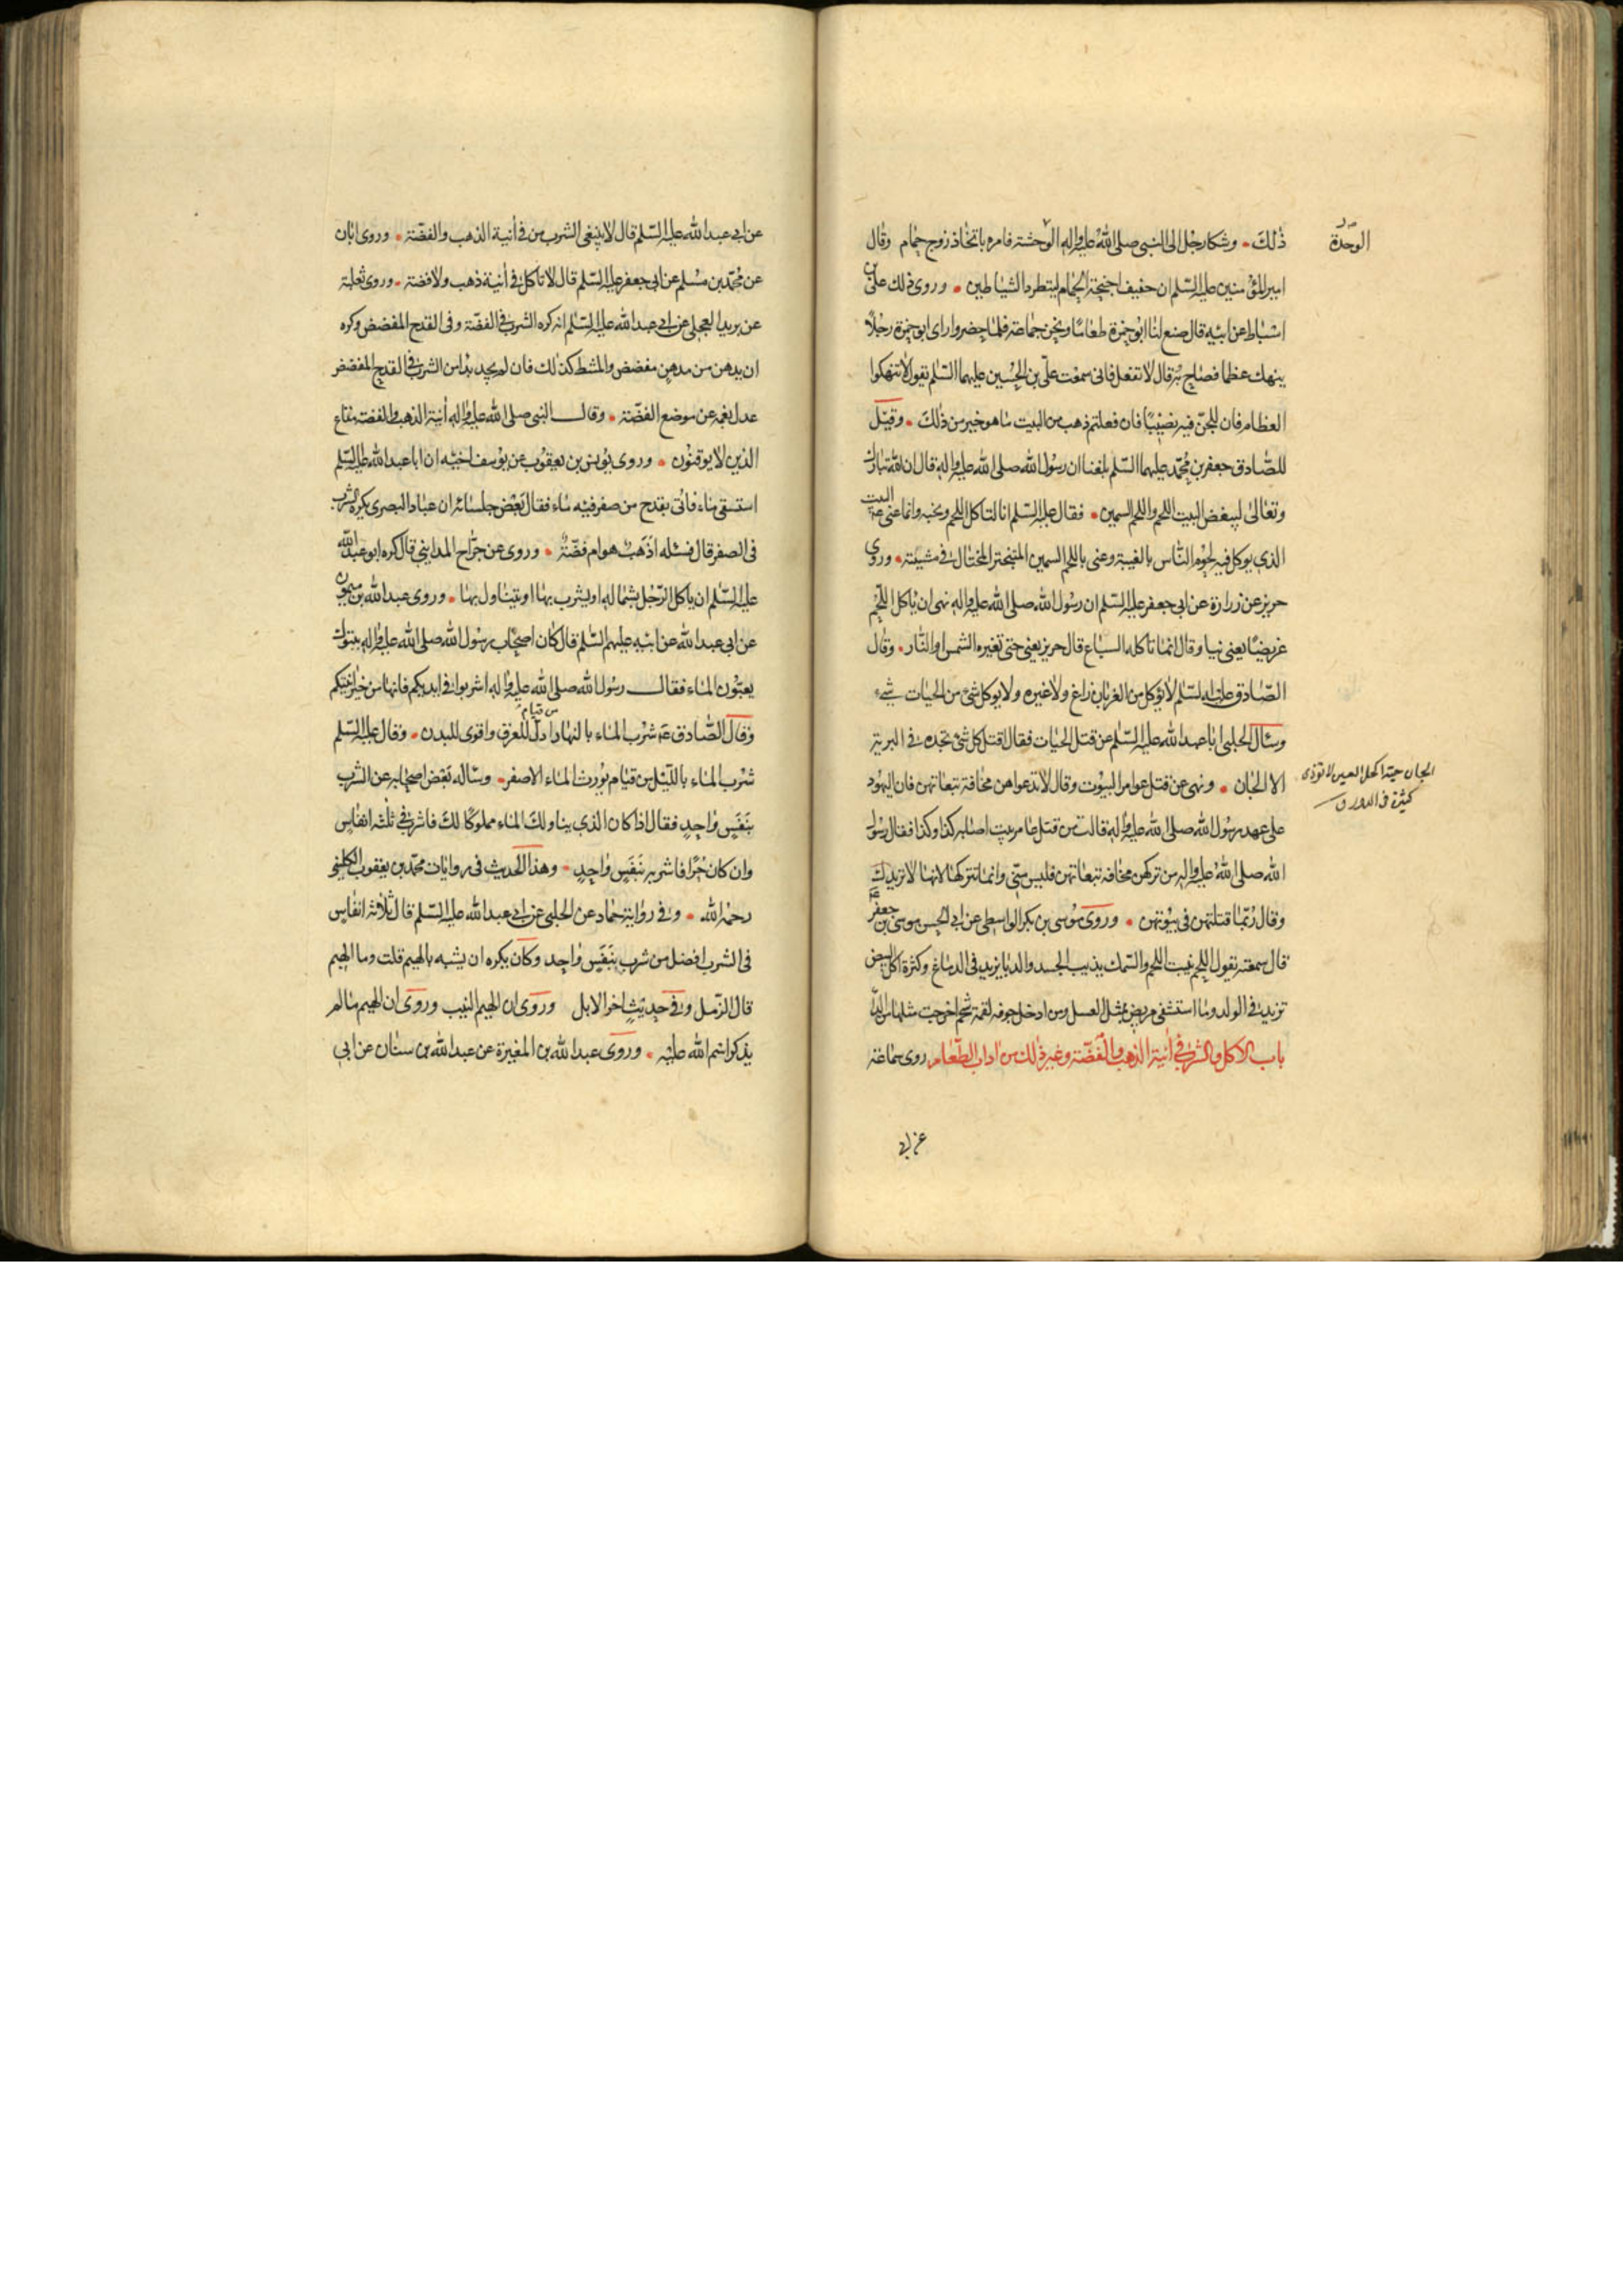 ذلك وشكا رجل الى النبى صلى الله عليه واله الوحشة فامره باتخاذ زوج حمام وقال
الوحدة
امير المؤمنين عليه السلم ان حفيف اجنحة الحمام ليتطرد الشياطين وروى ذلك على بن
اسباط عن ابيه قال صنع لنا ابو حمزة طعاما ونحن جماعة فلما حضروا راى ابو حمزة رجلا
ينهك عظما فصاح به قال لا تفعل فانى سمعت على بن الحسين عليهما السلم يقول لا تنهكوا
العظام فان للجن فيه نصيبا فان فعلتم ذهب من البيت ما هو خير من ذلك وقيل
للصادق جعفر بن محمد عليهما السلم بلغنا ان رسول الله صلى الله عليه واله قال ان الله تبارك
وتعالى ليبغض البيت اللحم واللحم السمين فقال عليه السلم انا لناكل اللحم ونحبه وانما عنى عم البيت
الذى يوكل فيه لحوم الناس بالغيبة وعنى باللحم السمين المتبختر المختال فى مشيته وروى
حريز عن زرارة عن ابى جعفر عليه السلم ان رسول الله صلى الله عليه واله نهى ان ياكل اللحم
غريضا يعنى نيا وقال انما تاكله السباع قال حريز يعنى حتى تغيره الشمس او النار وقال
الصادق عليه السلم لا يؤكل من الغربان زاغ ولا غيره ولا يوكل شئ من الحيات شئ
وسال الحلبى ابا عبد الله عليه السلم عن قتل الحيات فقال اقتل كل شئ تجده فى البرية
الا الجان ونهى عن قتل عوامر البيوت وقال لا تدعوهن مخافة تبعاتهن فان اليهود
الجان حية اكحل العين لا توذى
كثيرة فى الدور ق
على عهد رسول الله صلى الله عليه واله قالت من قتل عامر بيت اصابه كذا وكذا فقال رسول
الله صلى الله عليه واله من تركهن مخافة تبعاتهن فليس منى وانما تتركها لانها لا تريدك
وقال ربما قتلتهن فى بيوتهن وروى موسى بن بكر الواسطى عن ابى الحسن موسى بن جعفر عم
قال سمعته يقول اللحم ينبت اللحم والسمك يذيب الجسد والدبا يزيد فى الدماغ وكثرة اكل البيض
تزيد فى الولد وما استشفى مريض بمثل العسل ومن ادخل جوفه لقمة شحم اخرجت مثلها من الداء
باب الاكل والشرب فى انية الذهب والفضة وغير ذلك من اداب الطعام روى سماعة
عن ابى
عن ابى عبد الله عليه السلم قال لا ينبغى الشرب من فى انية الذهب والفضة وروى ابان
عن محمد بن مسلم عن ابى جعفر عليه السلم قال لا تاكل فى انية ذهب ولا فضة وروى ثعلبة
عن بريد العجلى عن ابى عبد الله عليه السلم انه كره الشرب فى الفضة وفى القدح المفضض وكره
ان يدهن من مدهن مفضض والمشط كذلك فان لم يجد بدا من الشرب فى القدح المفضض
عدل بفمه عن موضع الفضة وقال النبى صلى الله عليه واله انية الذهب والفضة متاع
الذين لا يوقنون وروى يونس بن يعقوب عن يوسف اخيه ان ابا عبد الله عليه السلم
استسقى ماء فاتى بقدح من صفر فيه ماء فقال بعض جلسائه ان عباد البصرى يكره الشرب
فى الصفر قال فسئله اذهب هو ام فضة وروى عن جراح المداينى قال كره ابو عبد الله
عليه السلم ان ياكل الرجل بشماله او يشرب بها او يتناول بها وروى عبد الله بن ميمون
عن ابى عبد الله عن ابيه عليهم السلم قال كان اصحاب رسول الله صلى الله عليه واله بتبوك
يعبون الماء فقال رسول الله صلى الله عليه واله اشربوا فى ايديكم فانها من خير انيتكم
وقال الصادق عم شرب الماء بالنهار من قيام ادر للعرق واقوى للبدن وقال عليه السلم
شرب الماء بالليل من قيام يورث الماء الاصفر وساله بعض اصحابه عن الشرب
بنفس واحد فقال اذا كان الذى يناولك الماء مملوكا لك فاشرب فى ثلثة انفاس
وان كان حرا فاشربه بنفس واحد وهذا الحديث فى روايات محمد بن يعقوب الكلينى
رحمه الله وفى رواية حماد عن الحلبى عن ابى عبد الله عليه السلم قال ثلاثة انفاس
فى الشرب افضل من شرب بنفس واحد وكان يكره ان يشبه بالهيم قلت وما الهيم
قال الزمل وفى حديث اخر الابل وروى ان الهيم النيب وروى ان الهيم ما لم
يذكر اسم الله عليه وروى عبد الله بن المغيرة عن عبد الله بن سنان عن ابى